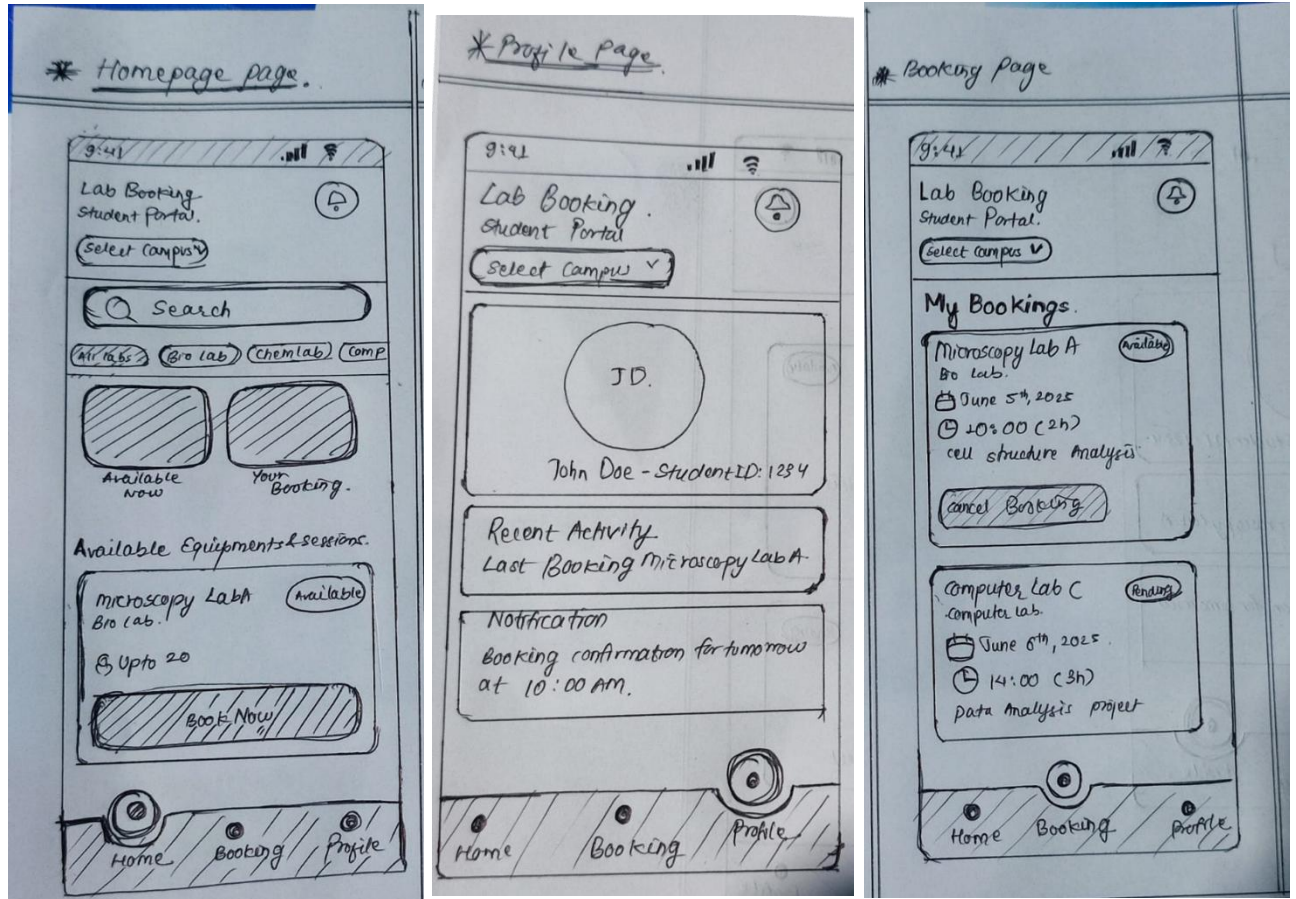 * Homepage page.
9:41
Lab Booking
Student Portal.
Select Campus
Search
All labs
Bio lab
Chemlab
Comp
Available Now
Your Booking.
Available Equipments & sessions.
Microscopy Lab A
Available
Bio Lab.
Upto 20
Book Now
Home
Booking
Profile
* Profile Page.
9:41
Lab Booking.
Student Portal
Select Campus
JD.
John Doe - Student ID: 1234
Recent Activity
Last Booking Microscopy Lab A
Notification
Booking confirmation for tumorrow
at 10:00 AM.
Home
Booking
Profile
* Booking Page
9:41
Lab Booking
Student Portal.
Select Campus
My Bookings.
Microscopy Lab A
Available
Bio Lab.
June 5th, 2025
10:00 (2h)
cell structure Analysis
Cancel Booking
Computer Lab C
Pending
Computer Lab.
June 6th, 2025.
14:00 (3h)
Data Analysis project
Home
Booking
Profile